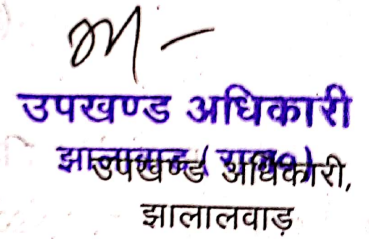 उपखण्ड अधिकारी
झालावाड़ (राज०)
उपखण्ड अधिकारी,
झालालवाड़